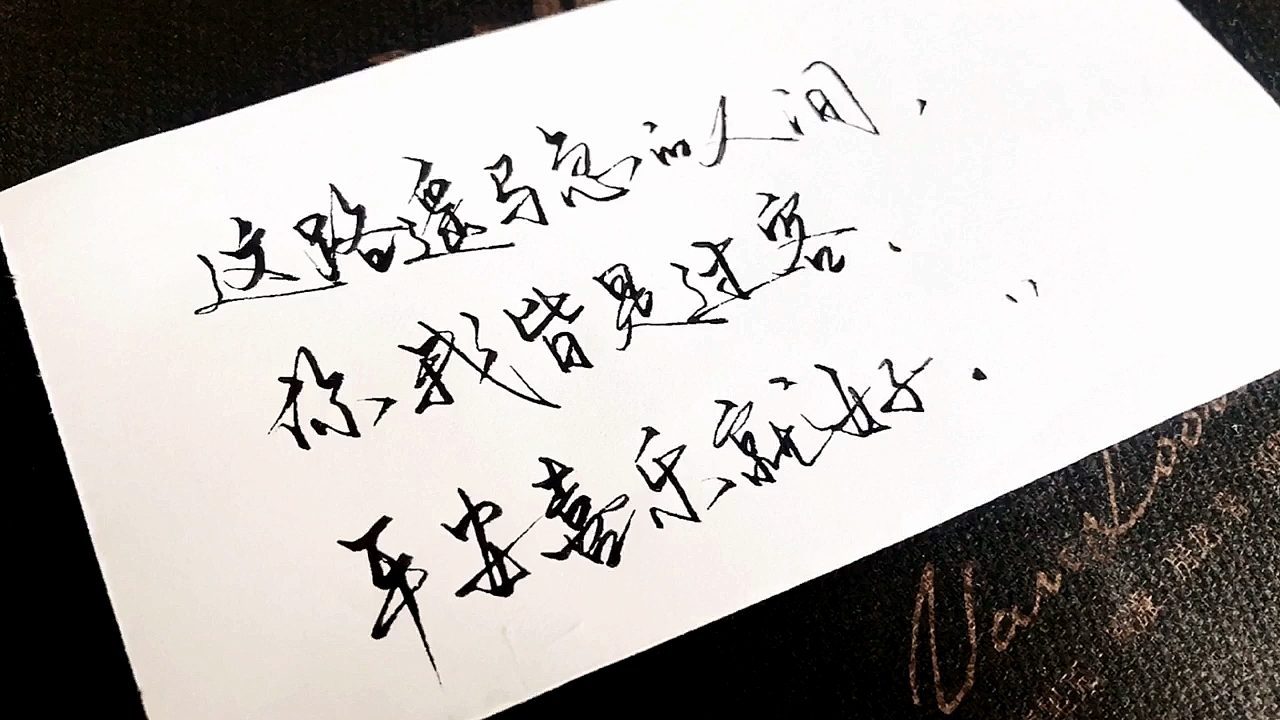 这路遥马急的人间，
你我皆是过客、
平安喜乐就好.”